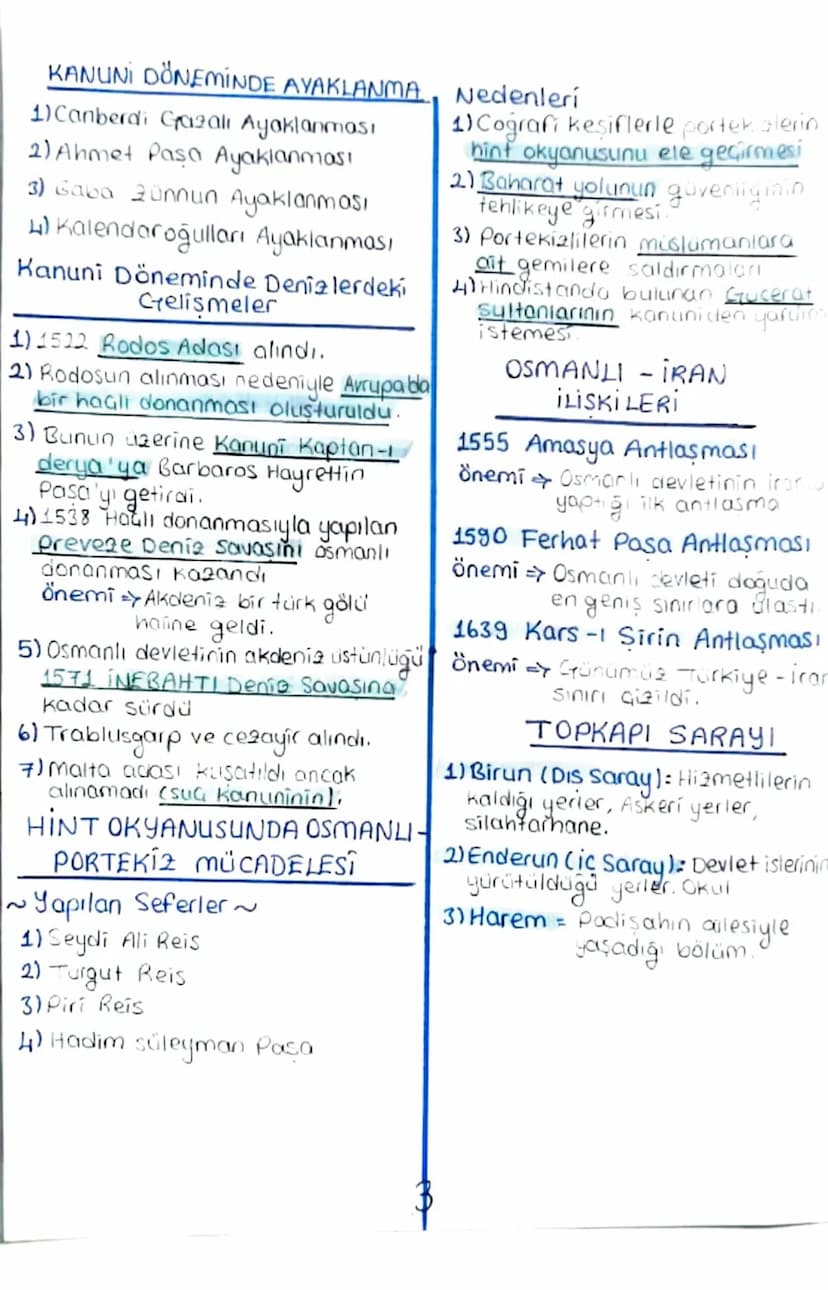 KANUNİ DÖNEMİNDE AYAKLANMA
1) Canberdi Gazali Ayaklanması
2) Ahmet Paşa Ayaklanması
3) Baba Zünnun Ayaklanması
4) Kalendaroğulları Ayaklanması
Kanuni Döneminde Denizlerdeki
Gelişmeler
1) 1522 Rodos Adası alındı.
2) Rodosun alınması nedeniyle Avrupa'da
bir haçlı donanması oluşturuldu.
3) Bunun üzerine Kanuni Kaptan-ı
derya'ya Barbaros Hayrettin
Paşa'yı getirdi.
4) 1538 Haçlı donanmasıyla yapılan
Preveze Deniz Savaşını osmanlı
donanması kazandı
Önemi => Akdeniz bir türk gölü
haline geldi.
5) Osmanlı devletinin akdeniz üstünlüğü
1571 İNEBAHTI Deniz Savaşına
kadar sürdü
6) Trablusgarp ve cezayir alındı.
7) Malta adası kuşatıldı ancak
alınamadı (suç kanuninin).
HİNT OKYANUSUNDA OSMANLI-
PORTEKİZ MÜCADELESİ
~ Yapılan Seferler ~
1) Seydi Ali Reis
2) Turgut Reis
3) Piri Reis
4) Hadim süleyman Paşa
Nedenleri
1) Coğrafi keşiflerle portekizlerin
hint okyanusunu ele geçirmesi
2) Baharat yolunun güvenliğinin
tehlikeye girmesi.
3) Portekizlilerin müslümanlara
ait gemilere saldırmaları
4) Hindistanda bulunan Gucerat
sultanlarının kanuniden yardım
istemesi.
OSMANLI - İRAN
İLİŞKİLERİ
1555 Amasya Antlaşması
önemi => Osmanlı devletinin iranla
yaptığı ilk antlaşma
1590 Ferhat Paşa Antlaşması
önemi => Osmanlı devleti doğuda
en geniş sınırlara ulaştı.
1639 Kars-ı Şirin Antlaşması
Önemi => Günümüz Türkiye - İran
sınırı çizildi.
TOPKAPI SARAYI
1) Birun (Dış Saray): Hizmetlilerin
kaldığı yerler, Askeri yerler,
silahtarhane.
2) Enderun (iç Saray): Devlet işlerinin
yürütüldüğü yerler. Okul
3) Harem = Padişahın ailesiyle
yaşadığı bölüm.
3